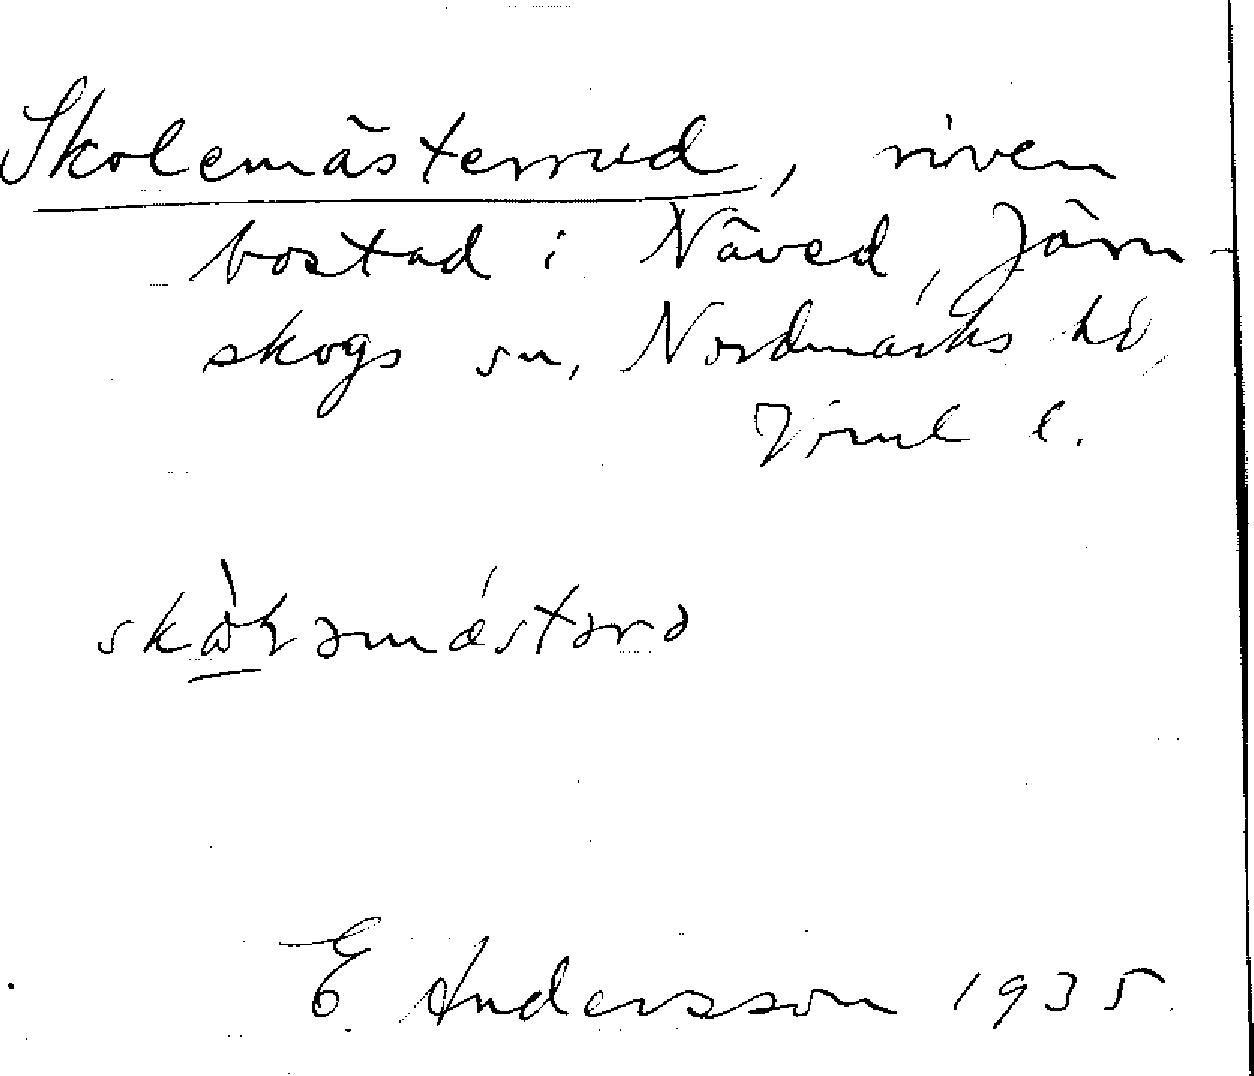 Skolemästerrud, riven
bostad i Näved, Järn-
skogs sn, Nordmarks hd,
Vrml l.
E. Andersson 1935